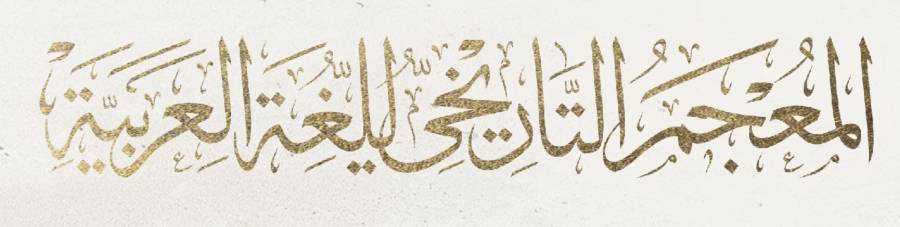 المُعْجَمُ التَّارِيخِيُّ لِلُّغَةِ العَرَبِيَّةِ